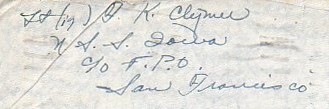 Lt (jg) A. K. Clymer
U. S. S. Iowa
c/o F.P.O.
San Francisco